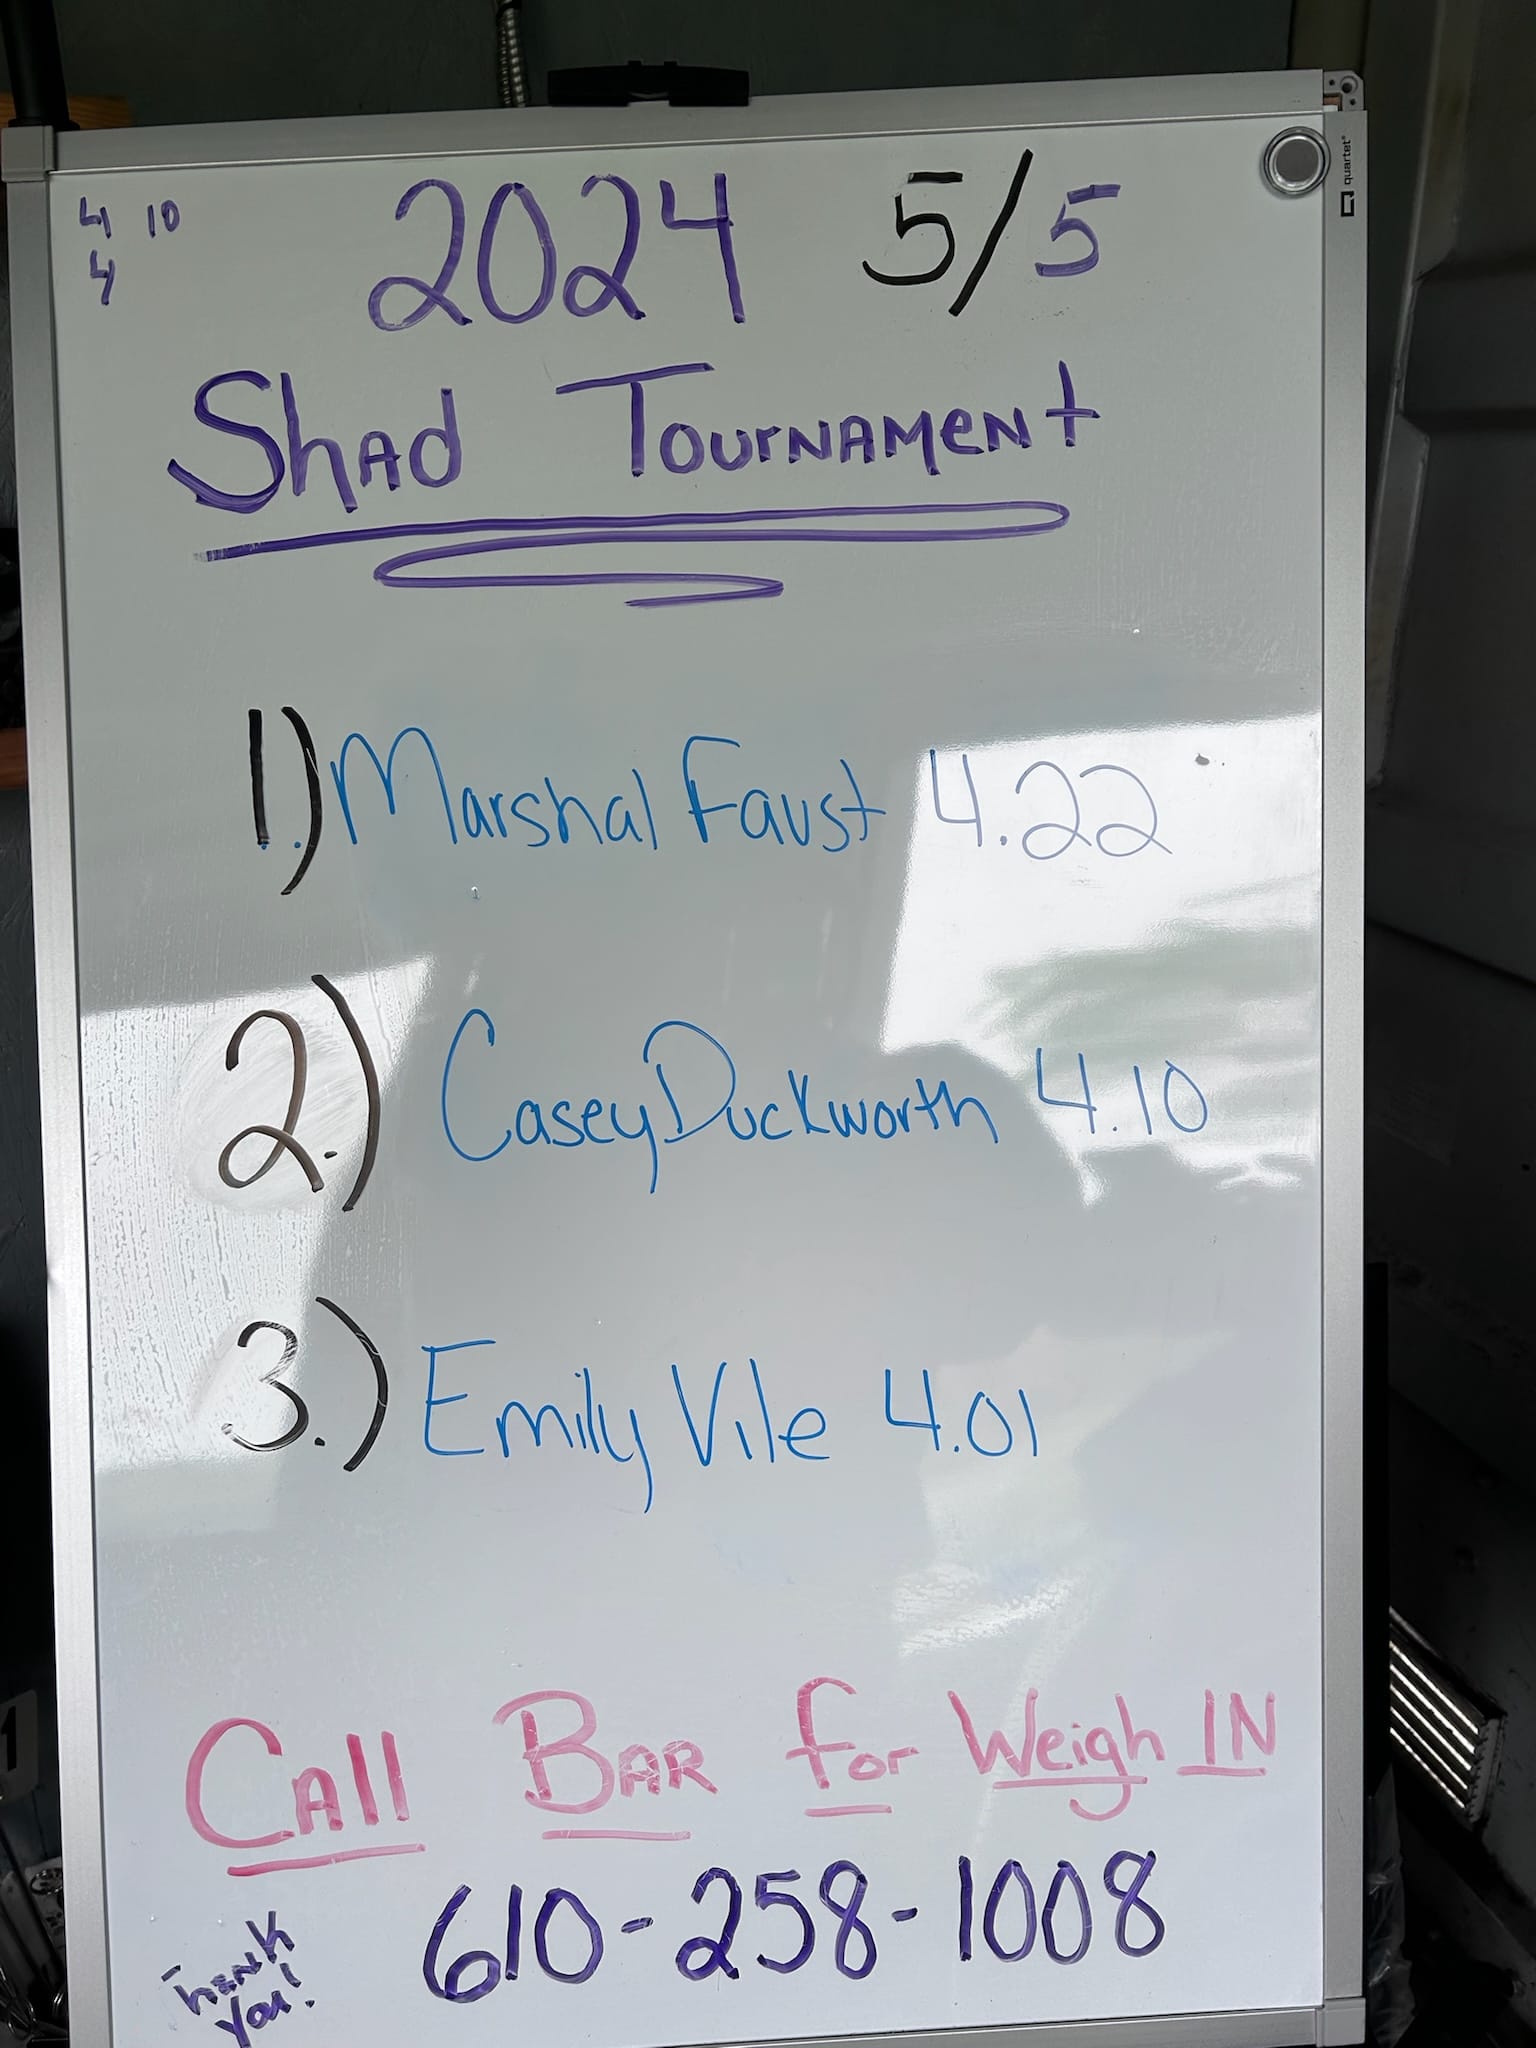 4 10
4
2024 5/5
Shad Tournament
1.) Marshal Faust 4.22
2.) Casey Duckworth 4.10
3.) Emily Vile 4.01
Call Bar for Weigh IN
610-258-1008
Thank
You!
quartet